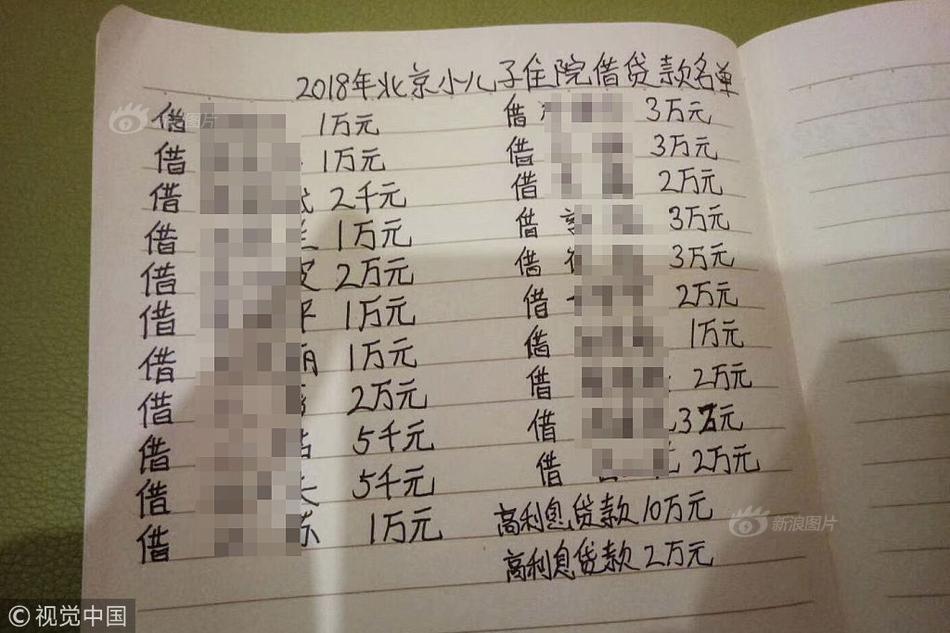 2018年北京小儿子住院借贷款名单
借 1万元
借 1万元
借 2千元
借 1万元
借 2万元
借 1万元
借 1万元
借 2万元
借 5千元
借 5千元
借 1万元
借 3万元
借 3万元
借 2万元
借 3万元
借 3万元
借 2万元
借 1万元
借 2万元
借 3万元
借 2万元
高利息贷款10万元
高利息贷款2万元
新浪图片
©视觉中国